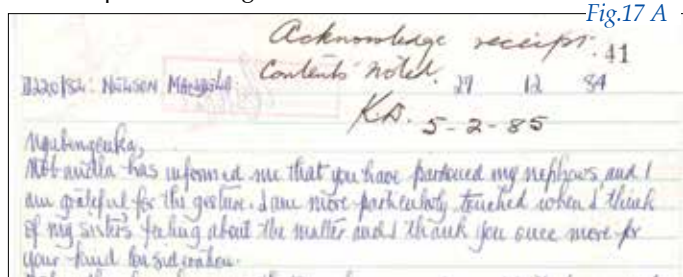 Fig.17 A
Acknowledge receipt. 41
Contents noted.
D220/82: NELSON MANDELA 27 12 84
KD. 5-2-85
Ngubengcuka,
Nobandla has informed me that you have pardoned my nephews, and I
am grateful for the gesture. I am more particularly touched when I think
of my sister's feeling about the matter and I thank you once more for
your kind consideration.